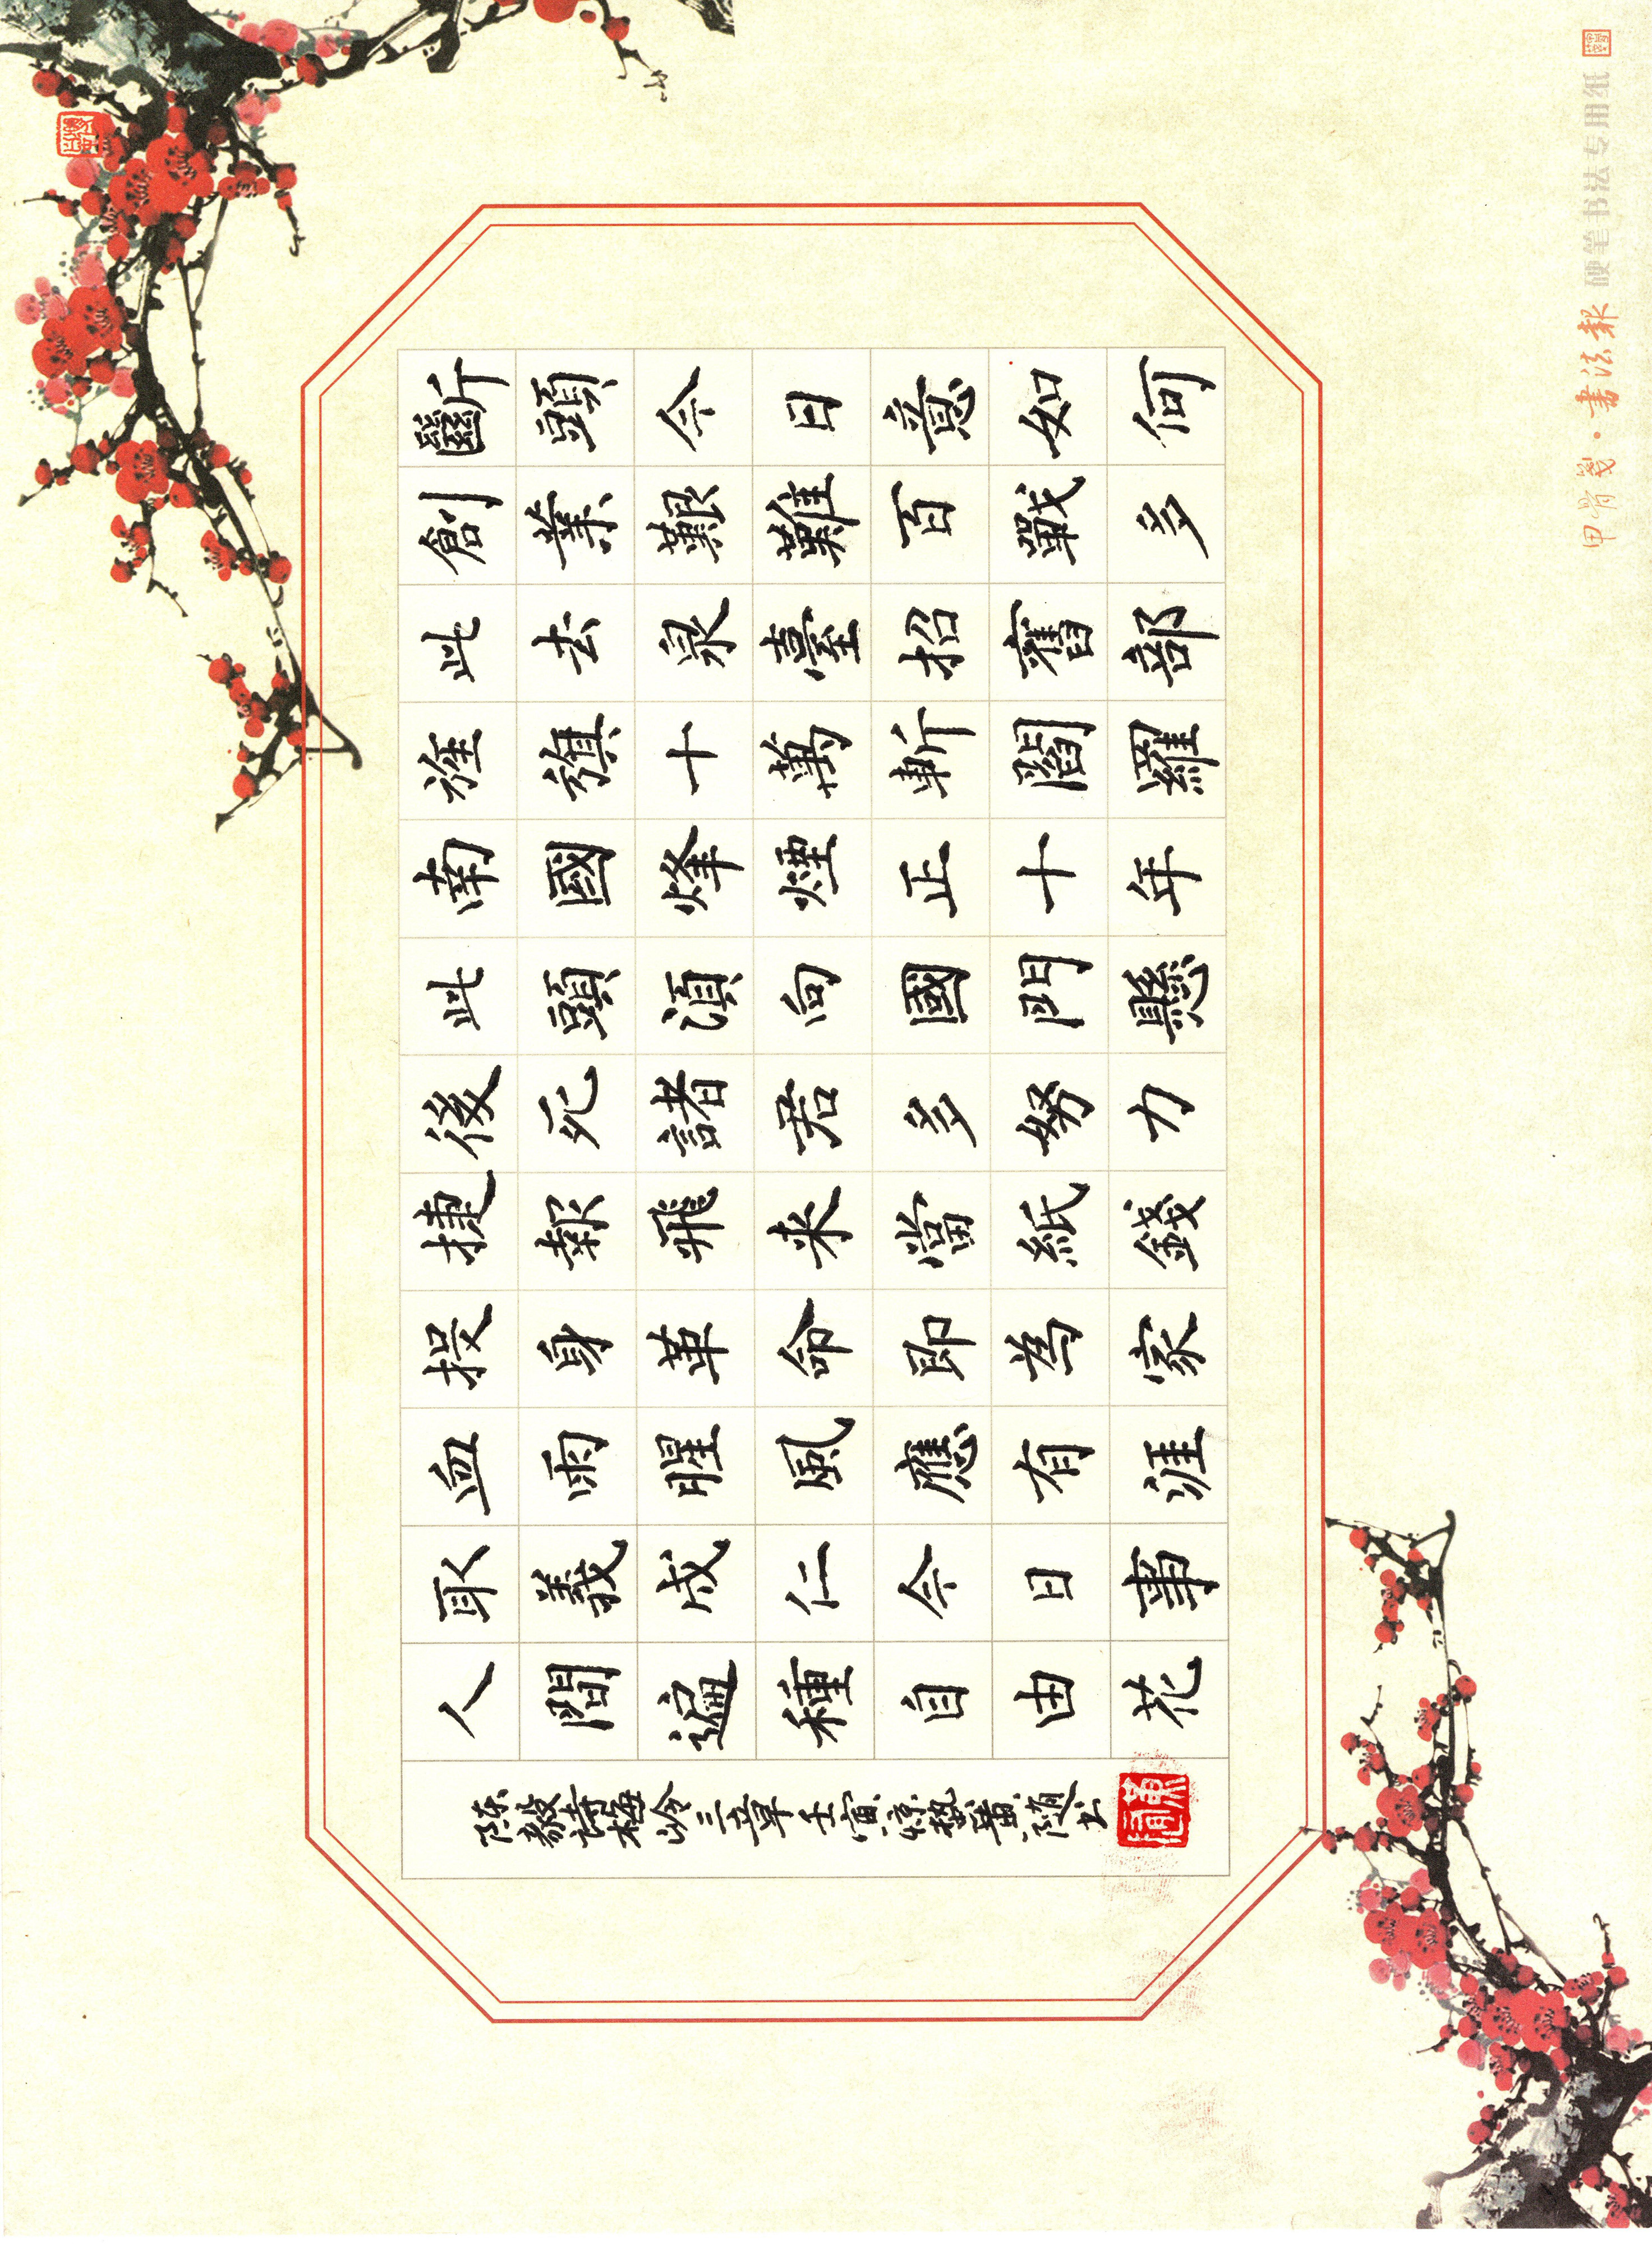 斷頭今日意如何
創業艱難百戰多
此去泉臺招舊部
旌旗十萬斬閻羅
南國烽煙正十年
此頭須向國門懸
後死諸君多努力
捷報飛來當紙錢
投身革命即為家
血雨腥風應有涯
取義成仁今日事
人間遍種自由花
陈毅詩梅岭三章壬寅惊蟄黄随书
甲骨箋·書法報 硬笔书法专用纸